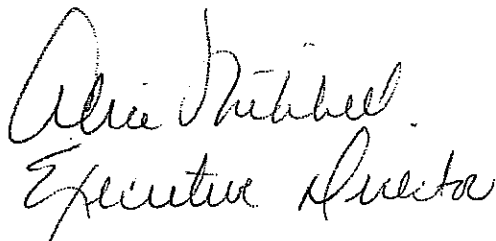 Alice Mitchell.
Executive Director